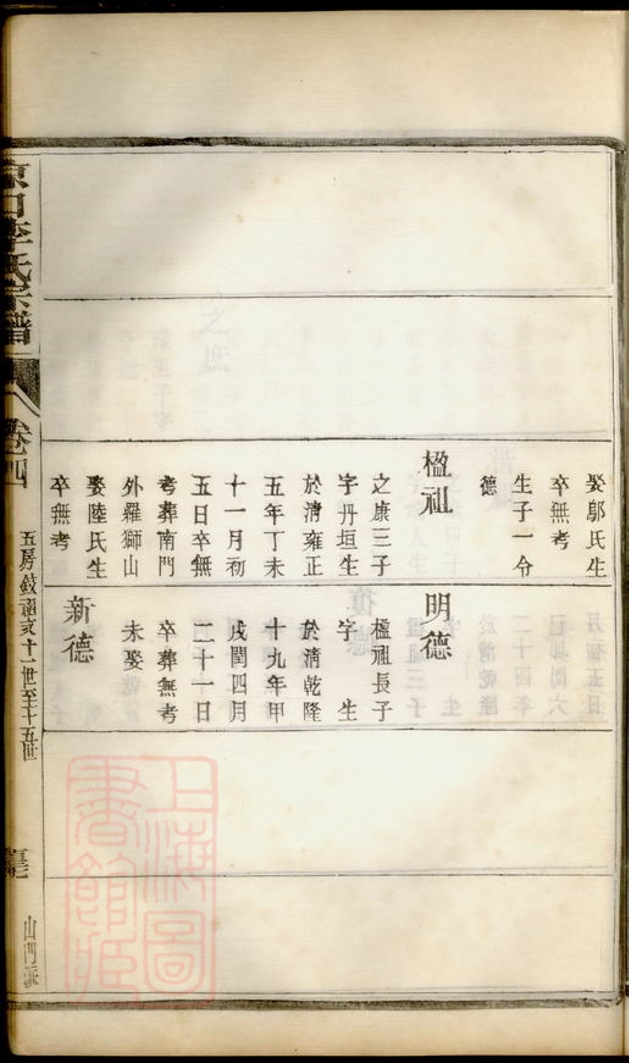 娶鄔氏生
卒無考
生子一令
德
楹祖
之康三子
字丹垣生
於清雍正
五年丁未
十一月初
五日卒無
考葬南門
外羅獅山
娶陸氏生
卒無考
明德
楹祖長子
字　生
於清乾隆
十九年甲
戌閏四月
二十一日
卒葬無考
未娶
新德
京口李氏宗譜
卷四
五房 十一世至十五世
山門派
上海圖書館藏